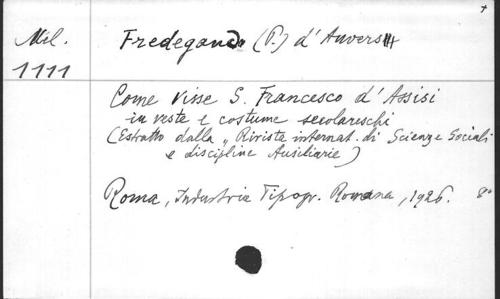 Mil.
1111
Fredegando (P.) d'Anversa
Come visse S. Francesco d'Assisi
in veste e costume secolareschi
(Estratto dalla „Rivista internat. di Scienze Sociali
e discipline Ausiliarie)
Roma, Industria Tipogr. Romana, 1926. 8°